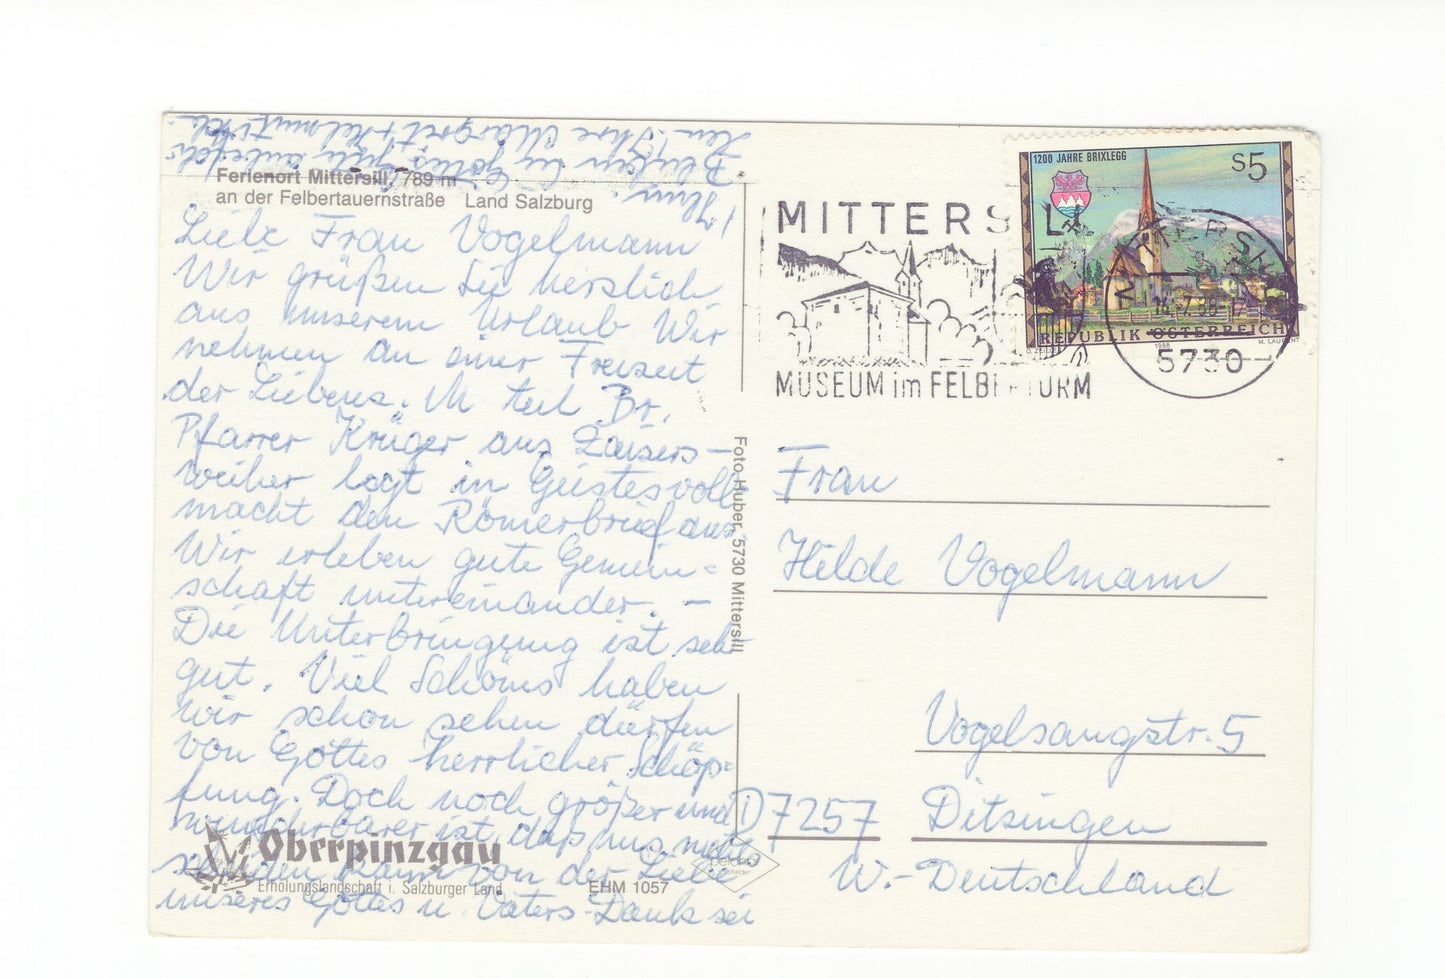 Ferienort Mittersill, 789 m
an der Felbertauernstraße Land Salzburg
Liebe Frau Vogelmann
Wir grüßen Sie herzlich
aus unserem Urlaub. Wir
nehmen an einer Freizeit
der Liebenz. M. teil Br.
Pfarrer Krüger aus Zaisers-
weiher legt in Geistesvoll-
macht den Römerbrief aus
Wir erleben gute Gemein-
schaft untereinander. –
Die Unterbringung ist sehr
gut. Viel Schönes haben
wir schon sehen dürfen
von Gottes herrlicher Schöp-
fung. Doch noch größer und
wunderbarer ist, daß uns nichts
scheiden kann von der Liebe
unseres Gottes u. Vaters. Dank sei
Ihm!
Bleiben Sie Gott
Ihre Margret + Helmut
Oberpinzgau
Erholungslandschaft i. Salzburger Land
EHM 1057
Foto Huber, 5730 Mittersill
MITTERS LL
MUSEUM im FELBERTURM
1200 JAHRE BRIXLEGG
S5
REPUBLIK ÖSTERREICH
1988
M. LAURENT
MITTERSILL
5730
Frau
Hilde Vogelmann
Vogelsangstr. 5
D 7257 Ditzingen
W.-Deutschland